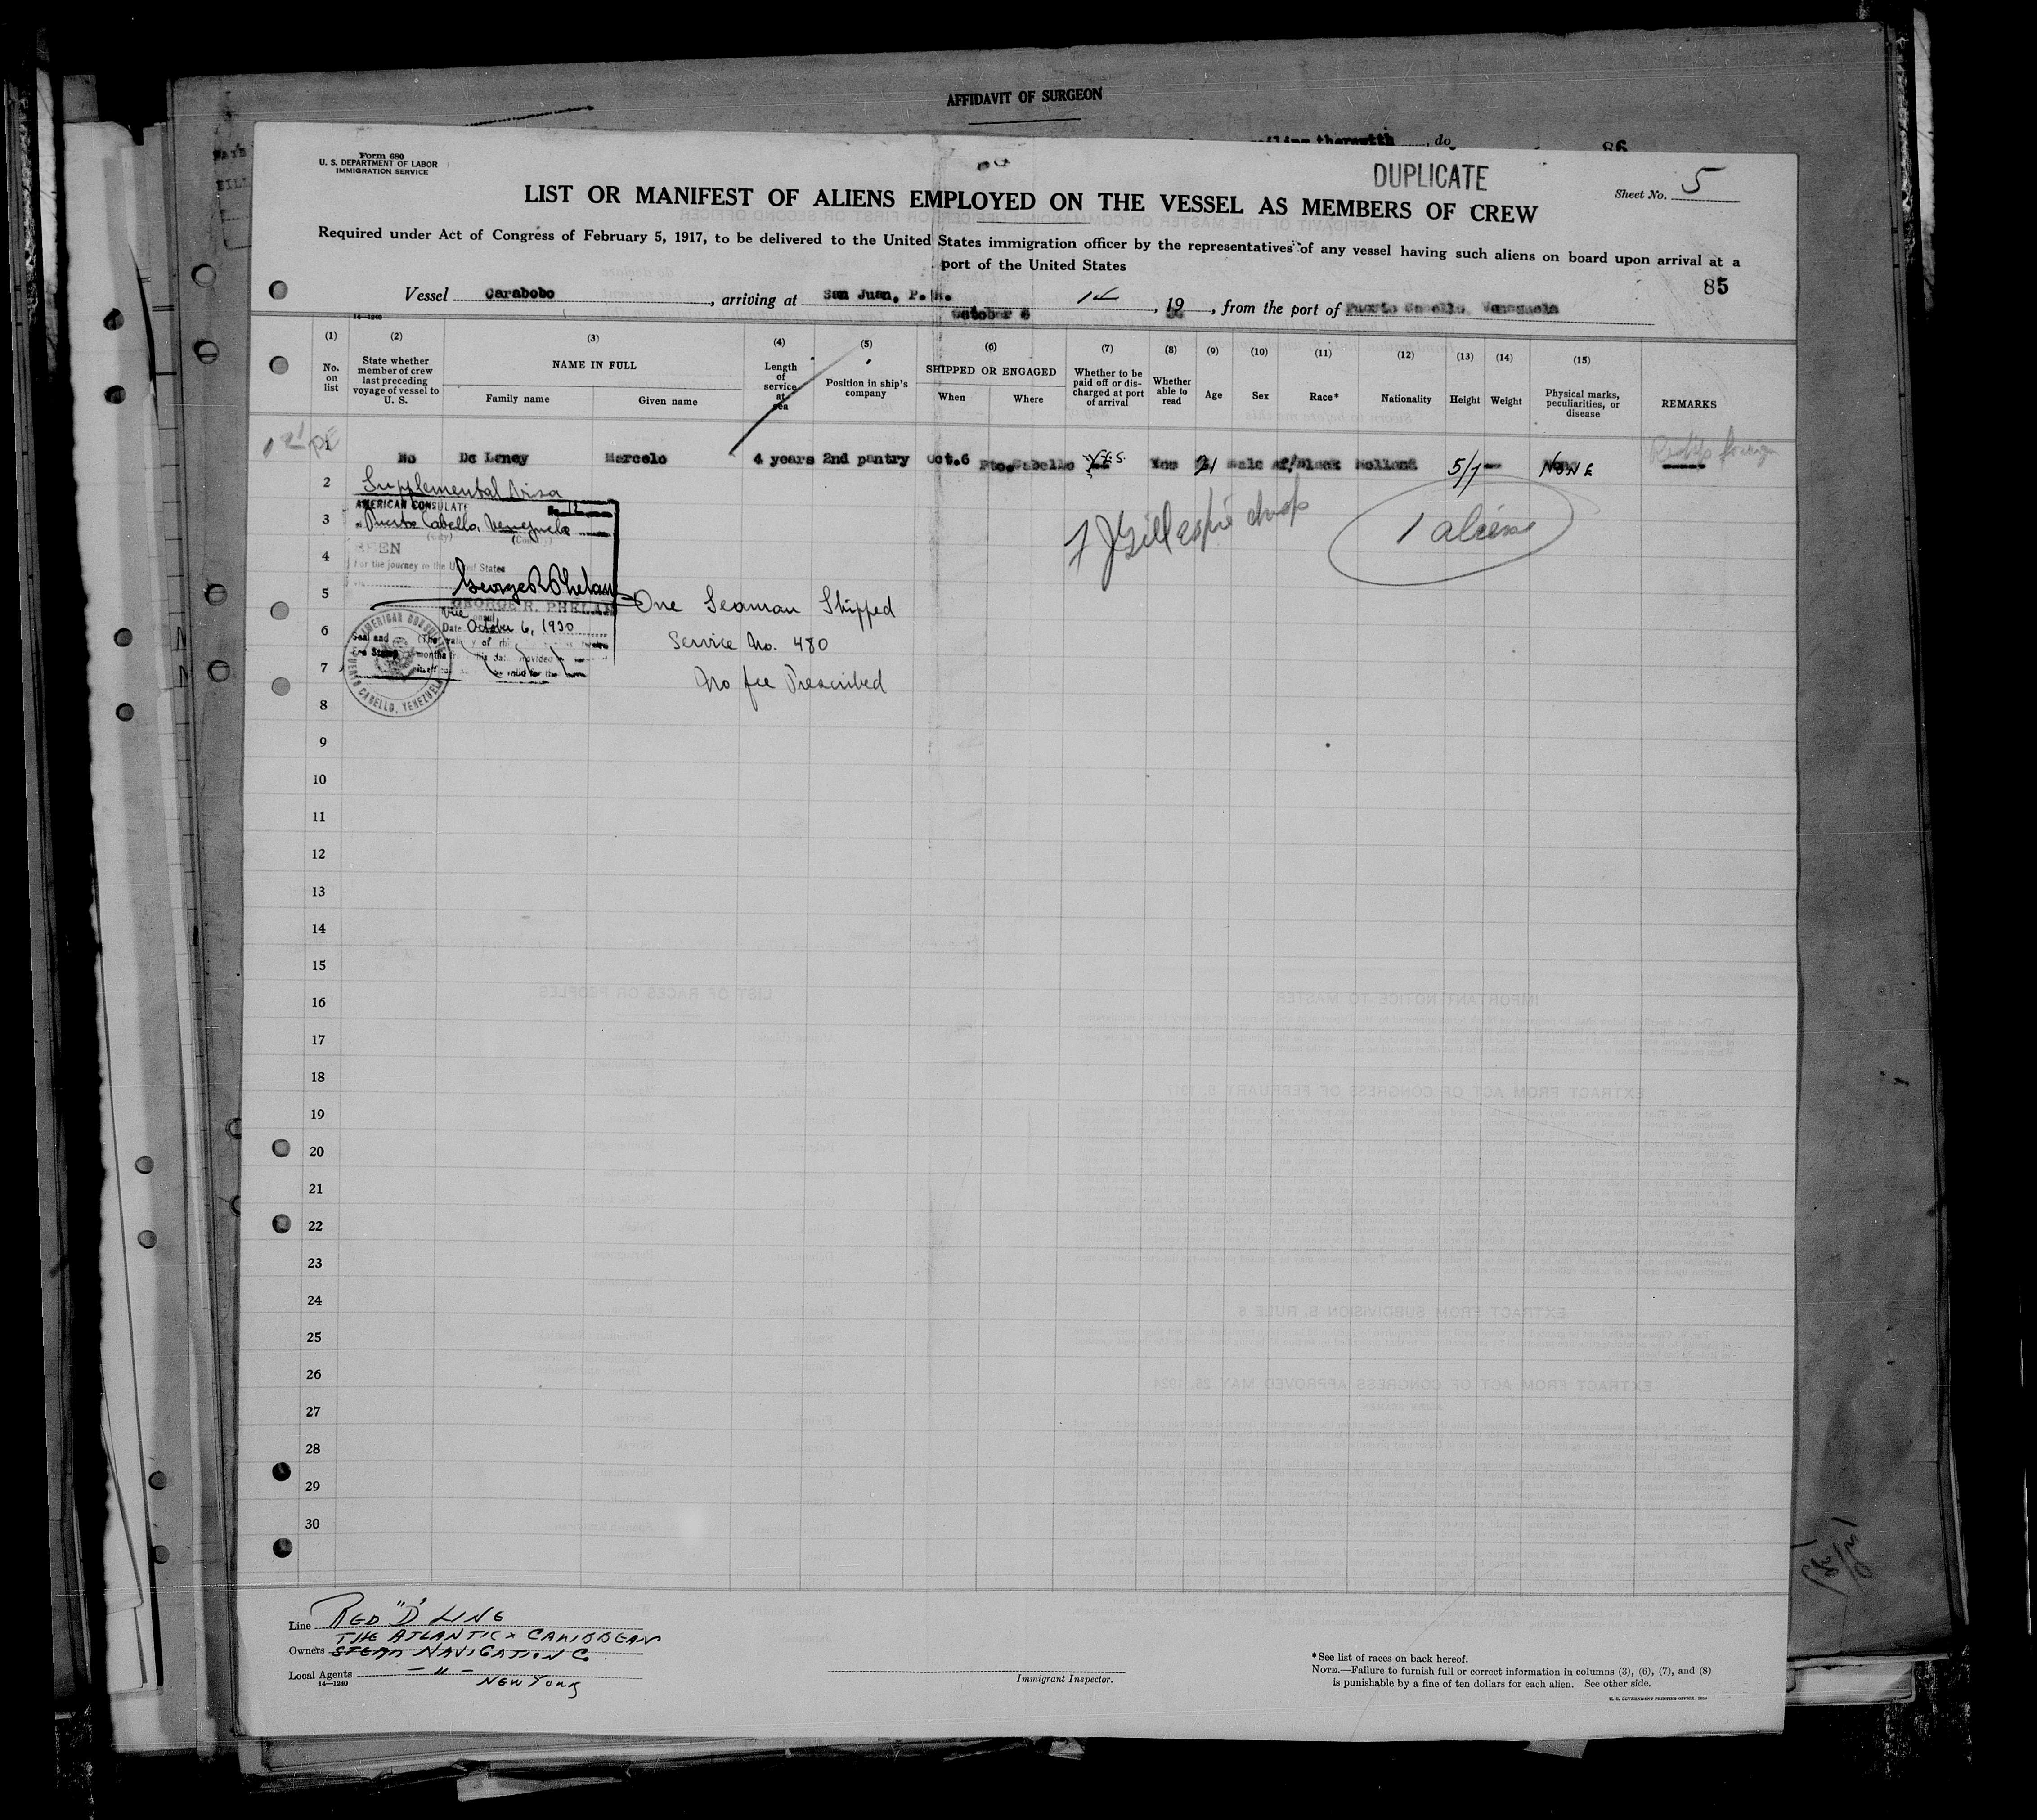 AFFIDAVIT OF SURGEON
therewith, do
86
Form 680
U. S. DEPARTMENT OF LABOR
IMMIGRATION SERVICE
DUPLICATE
Sheet No. 5
LIST OR MANIFEST OF ALIENS EMPLOYED ON THE VESSEL AS MEMBERS OF CREW
Required under Act of Congress of February 5, 1917, to be delivered to the United States immigration officer by the representatives of any vessel having such aliens on board upon arrival at a
port of the United States
85
Vessel Carabobo, arriving at San Juan, P. R. October 6, 1930, from the port of Puerto Cabello, Venezuela
14-1240
(1) (2) (3) (4) (5) (6) (7) (8) (9) (10) (11) (12) (13) (14) (15)
No. on list
State whether member of crew last preceding voyage of vessel to U. S.
NAME IN FULL
Family name
Given name
Length of service at sea
Position in ship's company
SHIPPED OR ENGAGED
When
Where
Whether to be paid off or discharged at port of arrival
Whether able to read
Age
Sex
Race*
Nationality
Height
Weight
Physical marks, peculiarities, or disease
REMARKS
1 No De Leney Marcelo 4 years 2nd pantry Oct.6 Pto.Cabello YES Yes 21 Male Af/Black Holland 5/7 - NONE
2 Supplemental Visa
AMERICAN CONSULATE
3 Puerto Cabello, Venezuela
(City) (Country)
F J Gillespie
1 alien
4 SEEN
For the journey to the United States
George R Phelan
5 One Seaman Shipped
GEORGE R. PHELAN
6 Date October 6, 1930
Service No. 480
7
No fee Prescribed
AMERICAN CONSULATE
PUERTO CABELLO, VENEZUELA
8
9
10
11
12
13
14
15
16
17
18
19
20
21
22
23
24
25
26
27
28
29
30
Line RED "D" LINE
THE ATLANTIC & CARIBBEAN
Owners STEAM NAVIGATION Co
Local Agents — " —
14—1240
NEW YORK
Immigrant Inspector.
*See list of races on back hereof.
NOTE.—Failure to furnish full or correct information in columns (3), (6), (7), and (8)
is punishable by a fine of ten dollars for each alien. See other side.
U. S. GOVERNMENT PRINTING OFFICE